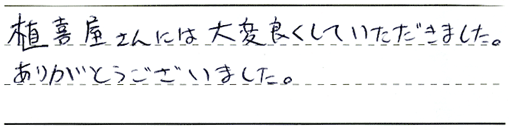 植喜屋さんには大変良くしていただきました。
ありがとうございました。